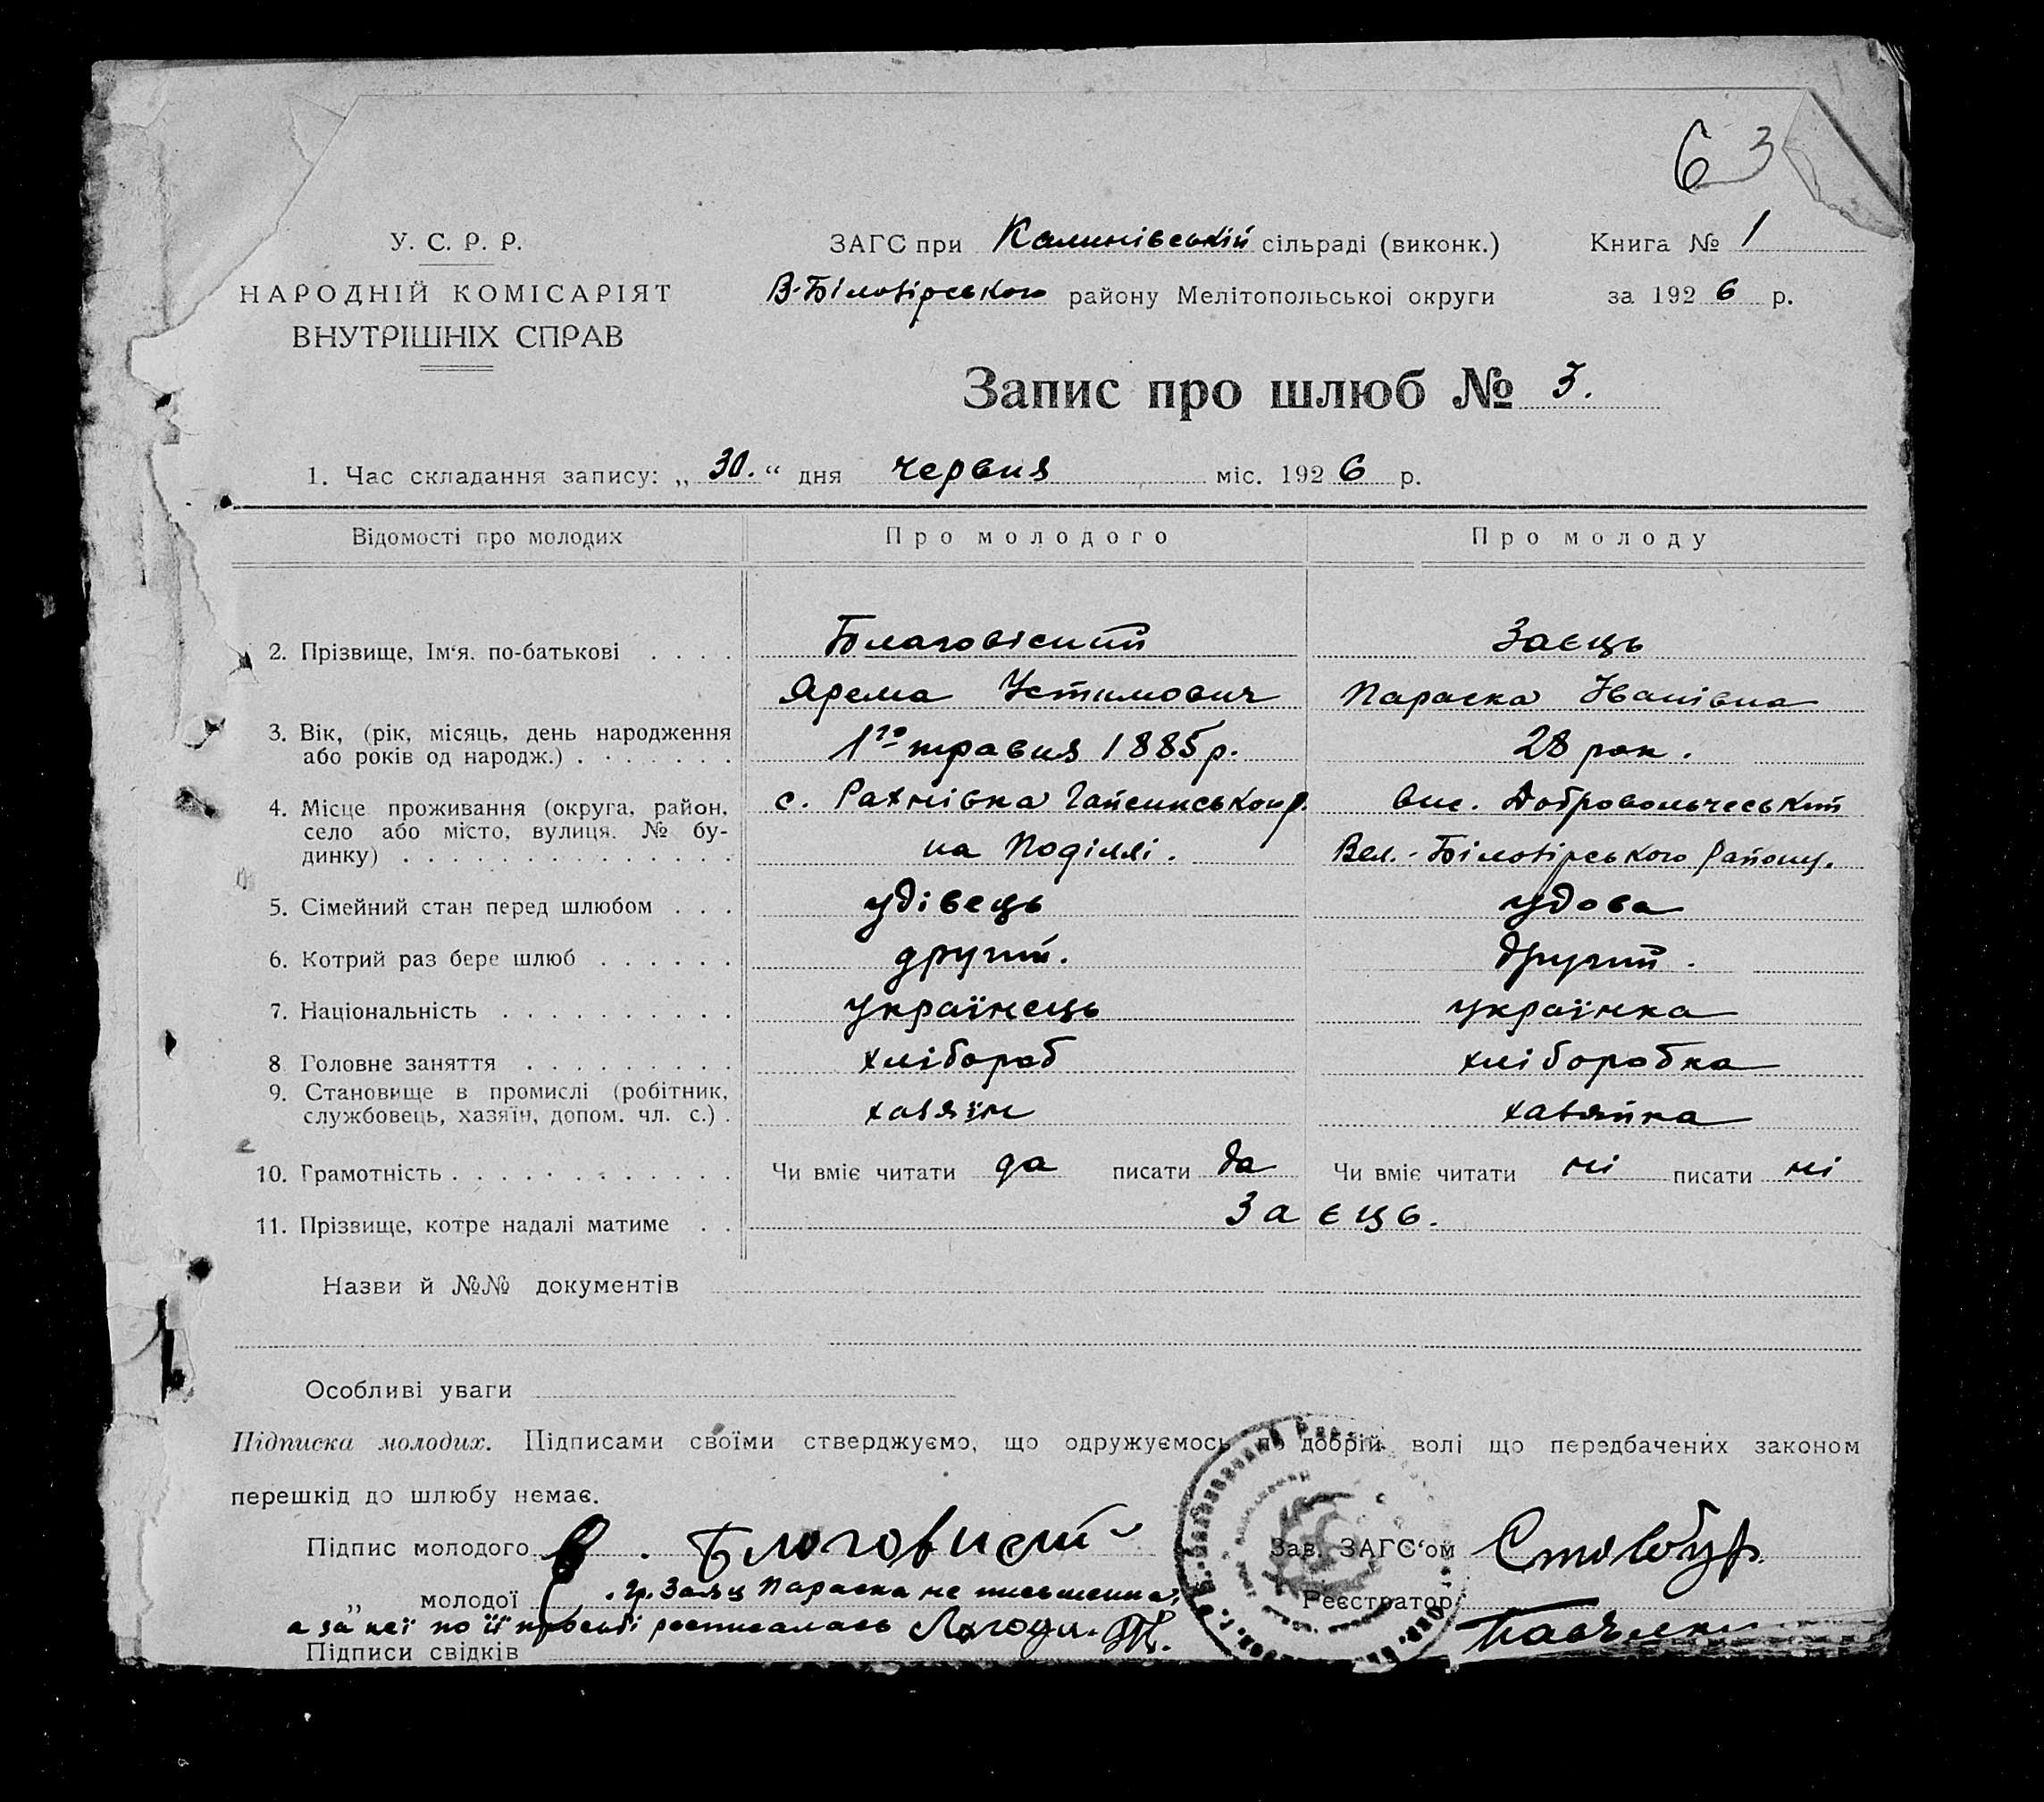 63
У. С. Р. Р.
НАРОДНІЙ КОМІСАРІЯТ
ВНУТРІШНІХ СПРАВ
ЗАГС при Калинівській сільраді (виконк.)
В-Білозірського району Мелітопольської округи
Книга № 1
за 1926 р.
Запис про шлюб № 3.
1. Час складання запису: „30.“ дня червня міс. 1926 р.
Відомості про молодих Про молодого Про молоду
2. Прізвище, Ім‘я, по-батькові . . . . Благовісний Заєць
Ярема Устимович Параска Іванівна
3. Вік, (рік, місяць, день народження
або років од народж.) . . . . . . . 1го травня 1885 р. 28 рок.
4. Місце проживання (округа, район, с. Рахнівка Гайсинськ. р. вис. Добровольчеський
село або місто, вулиця. № бу-
динку) . . . . . . . . . . . . . . на Поділлі. Вел.-Білозірського Району.
5. Сімейний стан перед шлюбом . . . удівець удова
6. Котрий раз бере шлюб . . . . . . другий. другий.
7. Національність . . . . . . . . . . українець українка
8 Головне заняття . . . . . . . . . хлібороб хліборобка
9. Становище в промислі (робітник,
службовець, хазяїн, допом. чл. с.) . хазяїн хазяйка
10. Грамотність . . . . . . . . . . . . Чи вміє читати да писати да Чи вміє читати ні писати ні
11. Прізвище, котре надалі матиме . . Заєць.
Назви й №№ документів
Особливі уваги
Підписка молодих. Підписами своїми стверджуємо, що одружуємось по добрій волі що передбачених законом
перешкід до шлюбу немає.
Підпис молодого Благовисний
„ молодої гр. Заяц Параска не письменна,
а за неї по її просьбі росписалась
Підписи свідків
Зав. ЗАГС‘ом Стовбур
Реєстратор